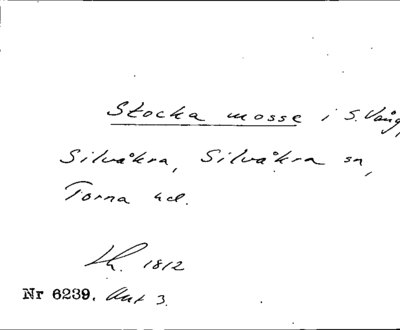 Stocka mosse i S. Vång,
Silvåkra, Silvåkra sn,
Torna hd.
Lk. 1812
Nr 6239. Akt 3.